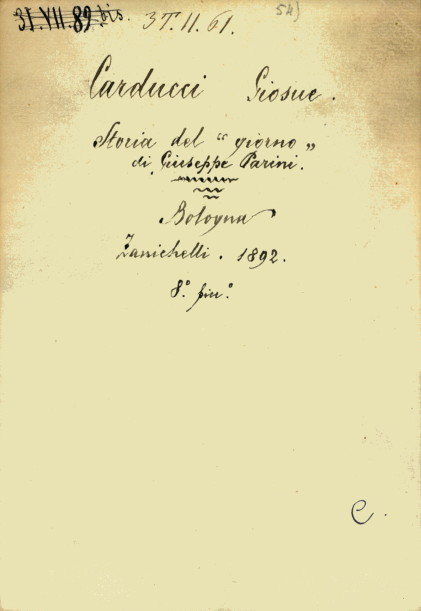 31.VII.89.bis. 3T.II.61. 54)
Carducci Giosue.
Storia del "giorno"
di Giuseppe Parini.
Bologna
Zanichelli. 1892.
8.° picc.°
C.